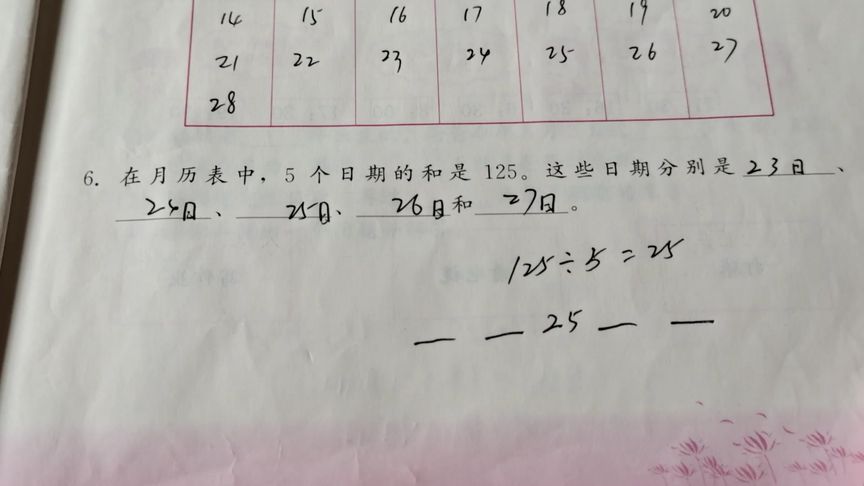 14 15 16 17 18 19 20
21 22 23 24 25 26 27
28
6. 在月历表中，5个日期的和是125。这些日期分别是 23日 、
24日 、 25日 、 26日 和 27日 。
125÷5=25
— — 25 — —